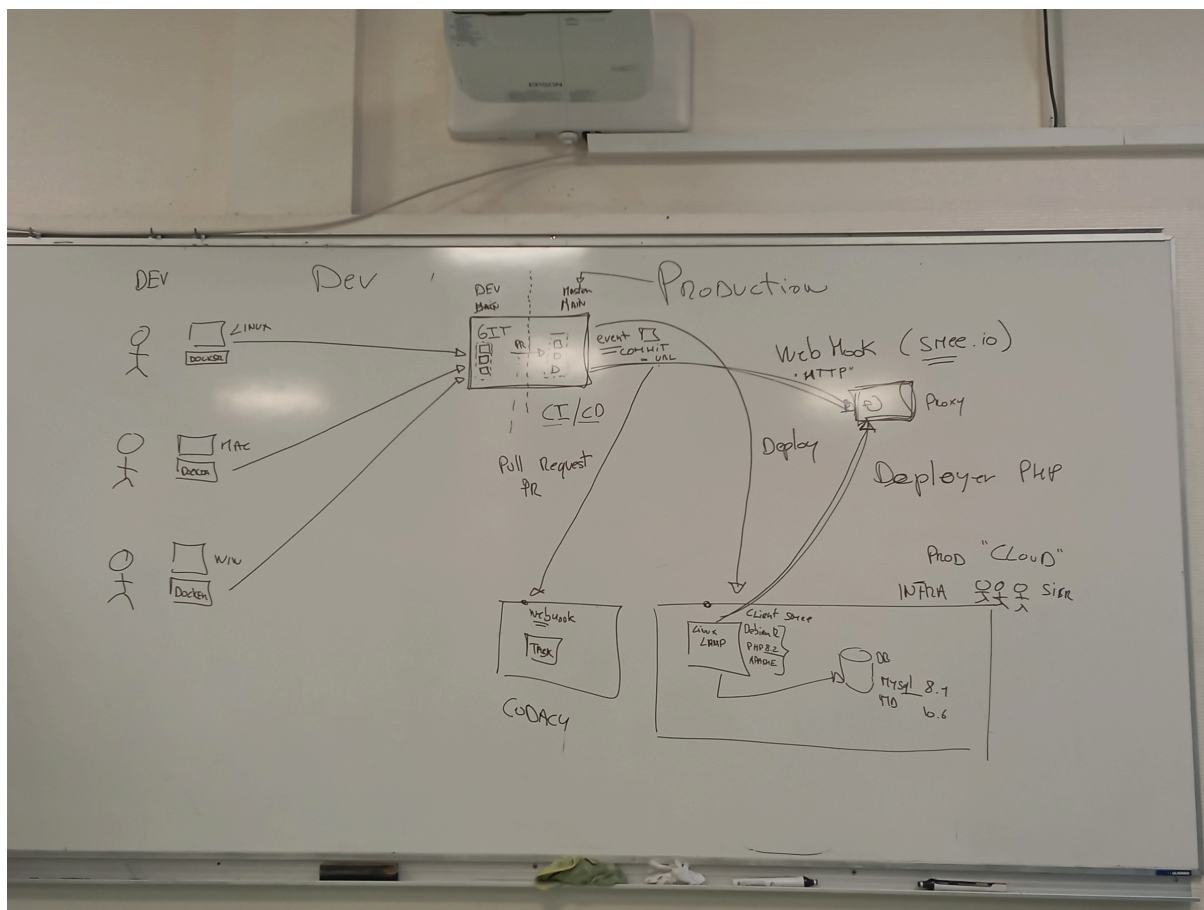 EPSON
DEV
Dev
DEV
MAIN
Master
MAIN
PRODUCTION
LINUX
DOCKER
GIT
PR
event
COMMIT
- URL
WebHook (SMEE.io)
"HTTP"
Proxy
CI/CD
MAC
DOCKER
Pull Request
PR
Deploy
Deployer PHP
WIN
DOCKER
PROD "CLOUD"
INFRA
Webhook
TASK
CODACY
CLIENT SMEE
Linux
LAMP
Debian 12
PHP 8.2
APACHE
DB
MySql 8.4
MD
10.6